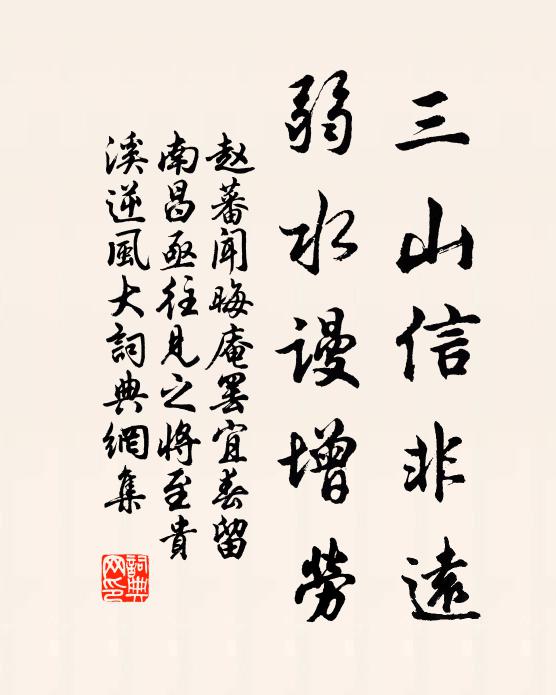 三山信非遠
弱水謾增勞
赵蕃聞晦庵罢宜春留
南昌亟往見之將至貴
溪逆風大詞典網集
詞典网印